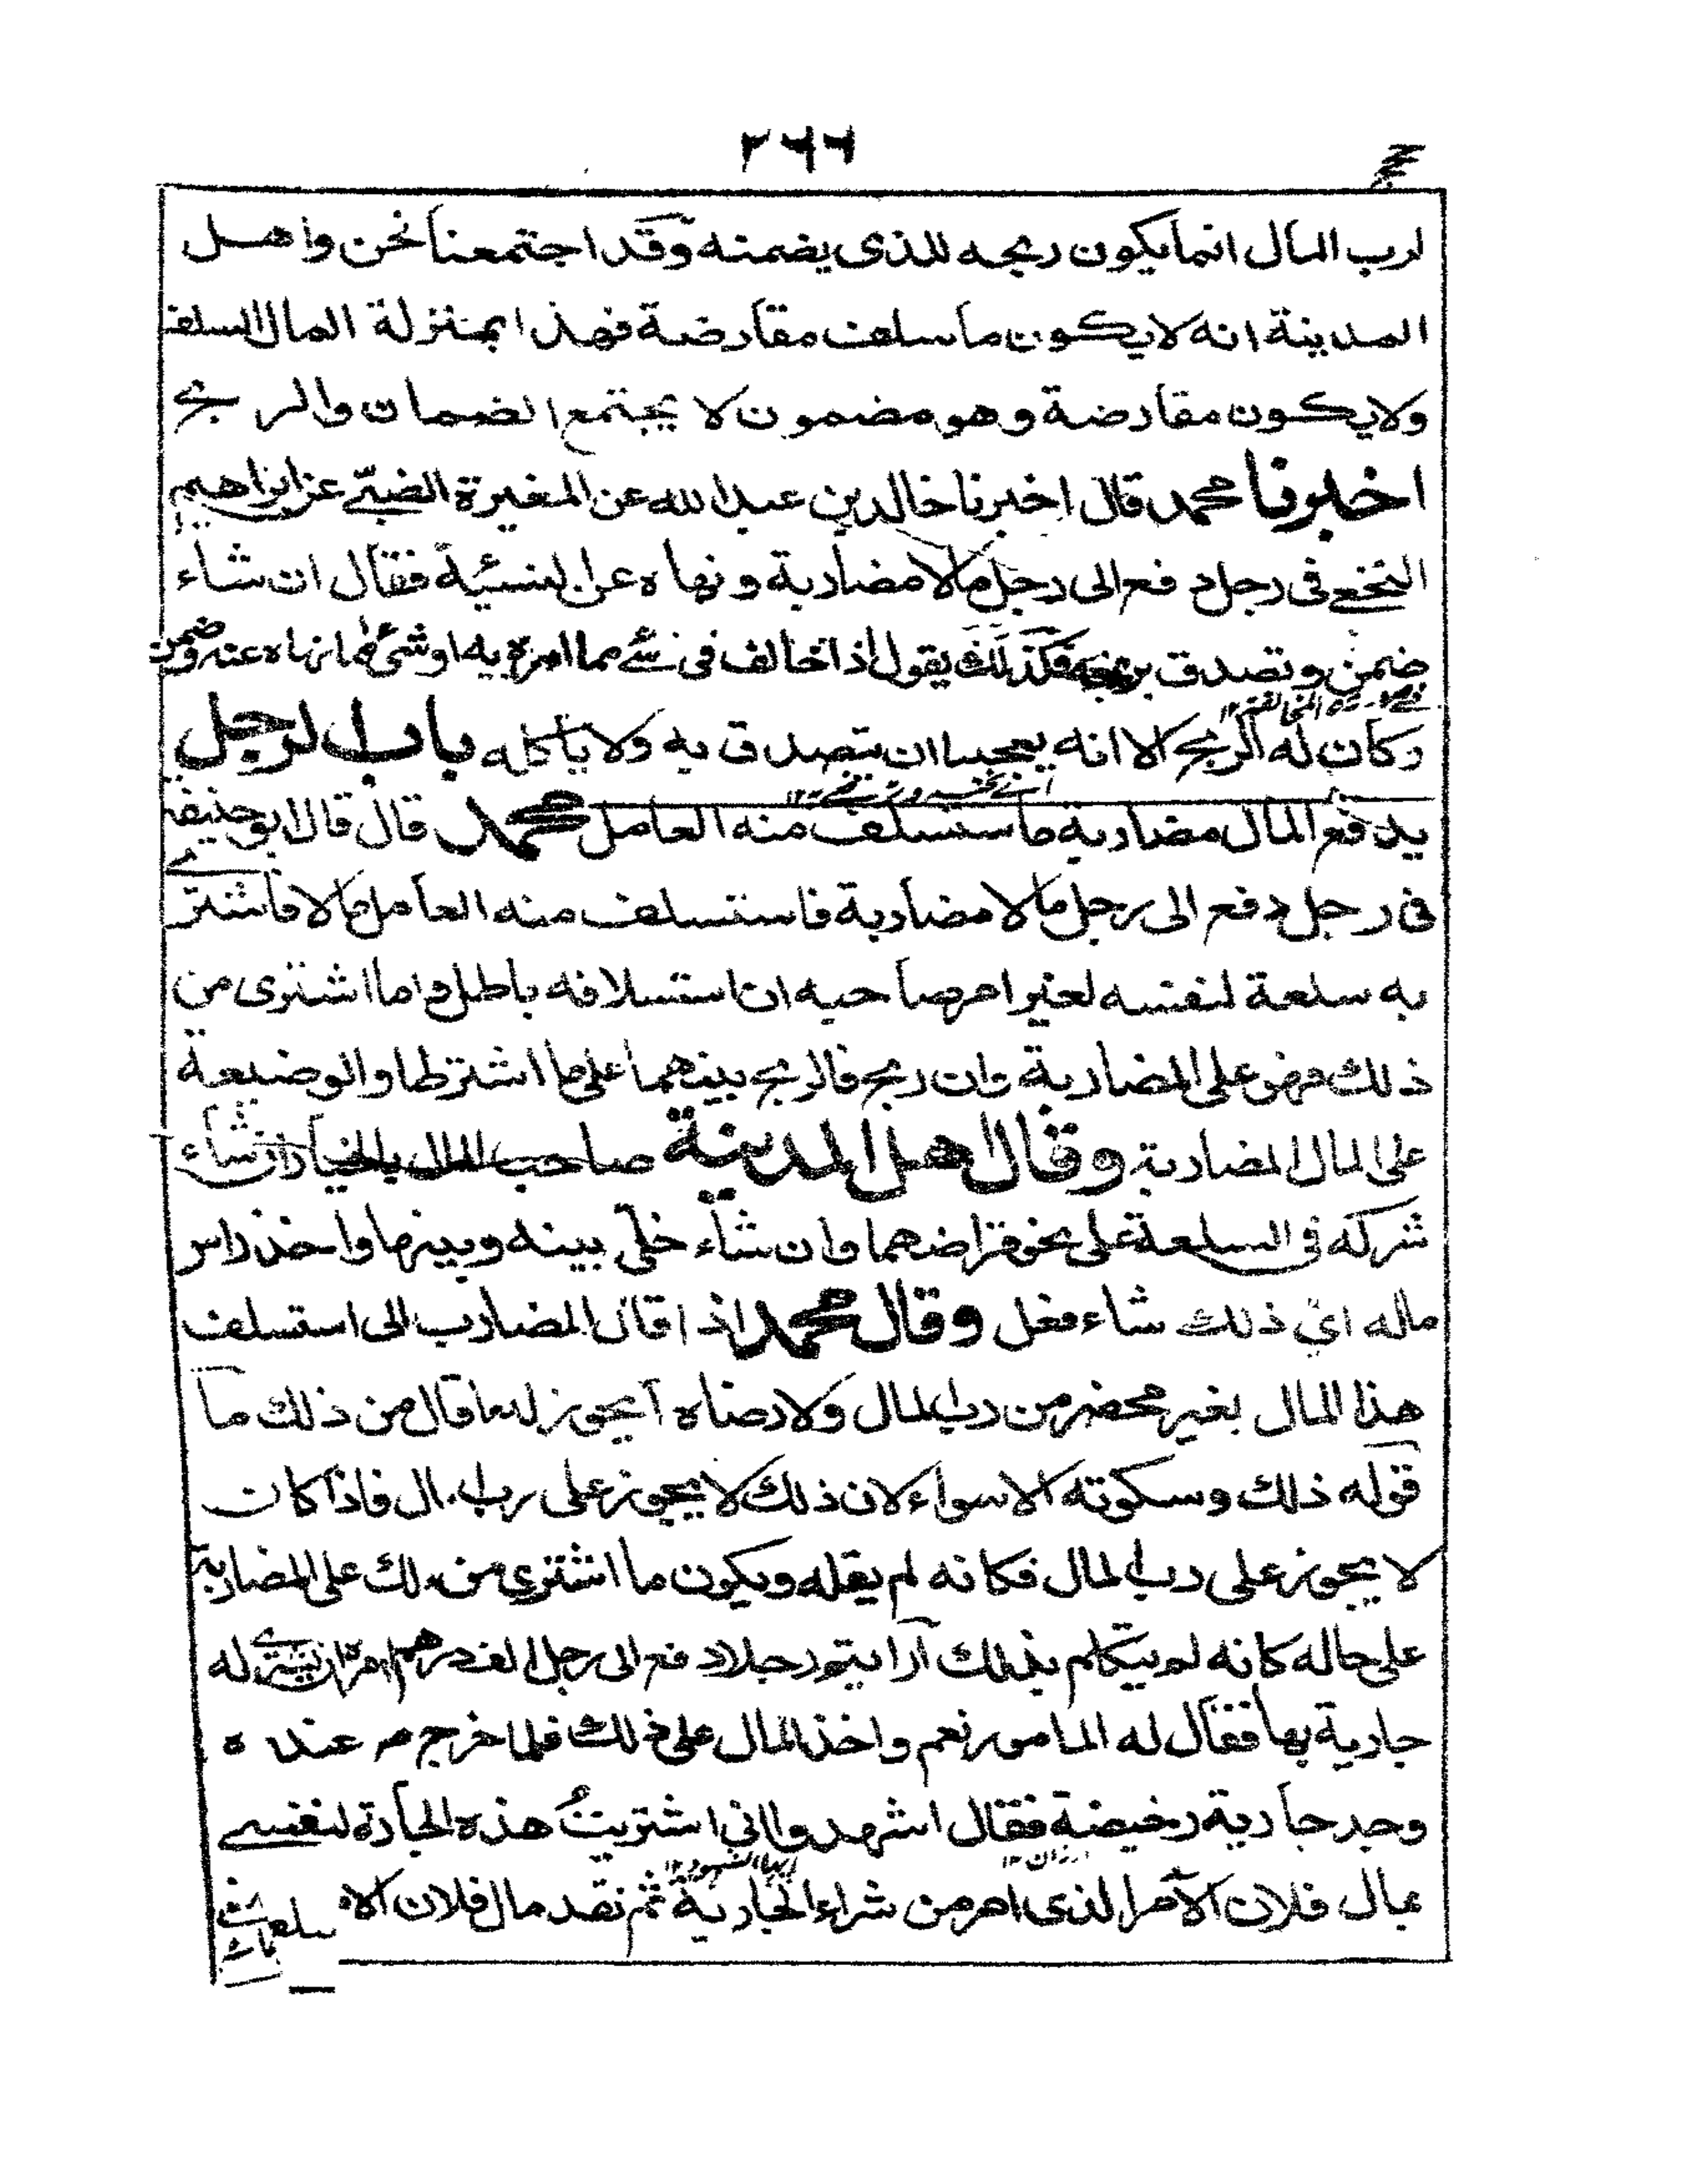 ٢٦٦
لرب المال انما يكون ربحه للذي يضمنه وقد اجتمعنا نحن واهل
المدينة انه لا يكون ما سلف مقارضة فهذا بمنزلة المال السلف
ولا يكون مقارضة وهو مضمون لا يجتمع الضمان والربح
اخبرنا محمد قال اخبرنا خالد بن عبد الله عن المغيرة الضبي عن ابراهيم
النخعي في رجل دفع الى رجل مالا مضاربة ونهاه عن النسيئة فقال ان شاء
ضمن وتصدق بربحه فكذلك يقول اذا خالف في شئ مما امره به او شئ مما نهاه عنه ضمن
وكان له الربح الا انه يعجبنا ان يتصدق به ولا ياكله باب الرجل
يدفع المال مضاربة ما ستسلف منه العامل محمد قال قال ابو حنيفة
في رجل دفع الى رجل مالا مضاربة فاستسلف منه العامل مالا فاشترى
به سلعة لنفسه لغير امر صاحبه ان استسلافه باطل واما اشترى من
ذلك فهو على المضاربة وان ربح فالربح بينهما على ما اشترطا والوضيعة
على المال المضاربة وقال اهل المدينة صاحب المال بالخيار ان شاء
شركه في السلعة على نحو قراضهما وان شاء خلي بينه وبينها واخذ راس
ماله اي ذلك شاء فعل وقال محمد اذا قال المضارب الى استسلف
هذا المال بغير محضر من رب المال ولا رضاه آيجوز له ما قال من ذلك ما
قوله ذلك وسكوته الا سواء لان ذلك لا يجوز على رب ال فاذا كان
لا يجوز على رب المال فكانه لم يقله ويكون ما اشترى من لك على المضاربة
على حاله كانه لم يتكلم بذلك آرايتم رجلا دفع الى رجل الف درهم امره ان يشتري له
جارية بها فقال له المامور نعم واخذ المال على ذلك فلما خرج من عنده
وجد جارية رخيصة فقال اشهدوا اني اشتريتُ هذه الجارة لنفسي
بمال فلان الآمر الذي امر من شراء الجارية ثم نقد مال فلان الا سلعا